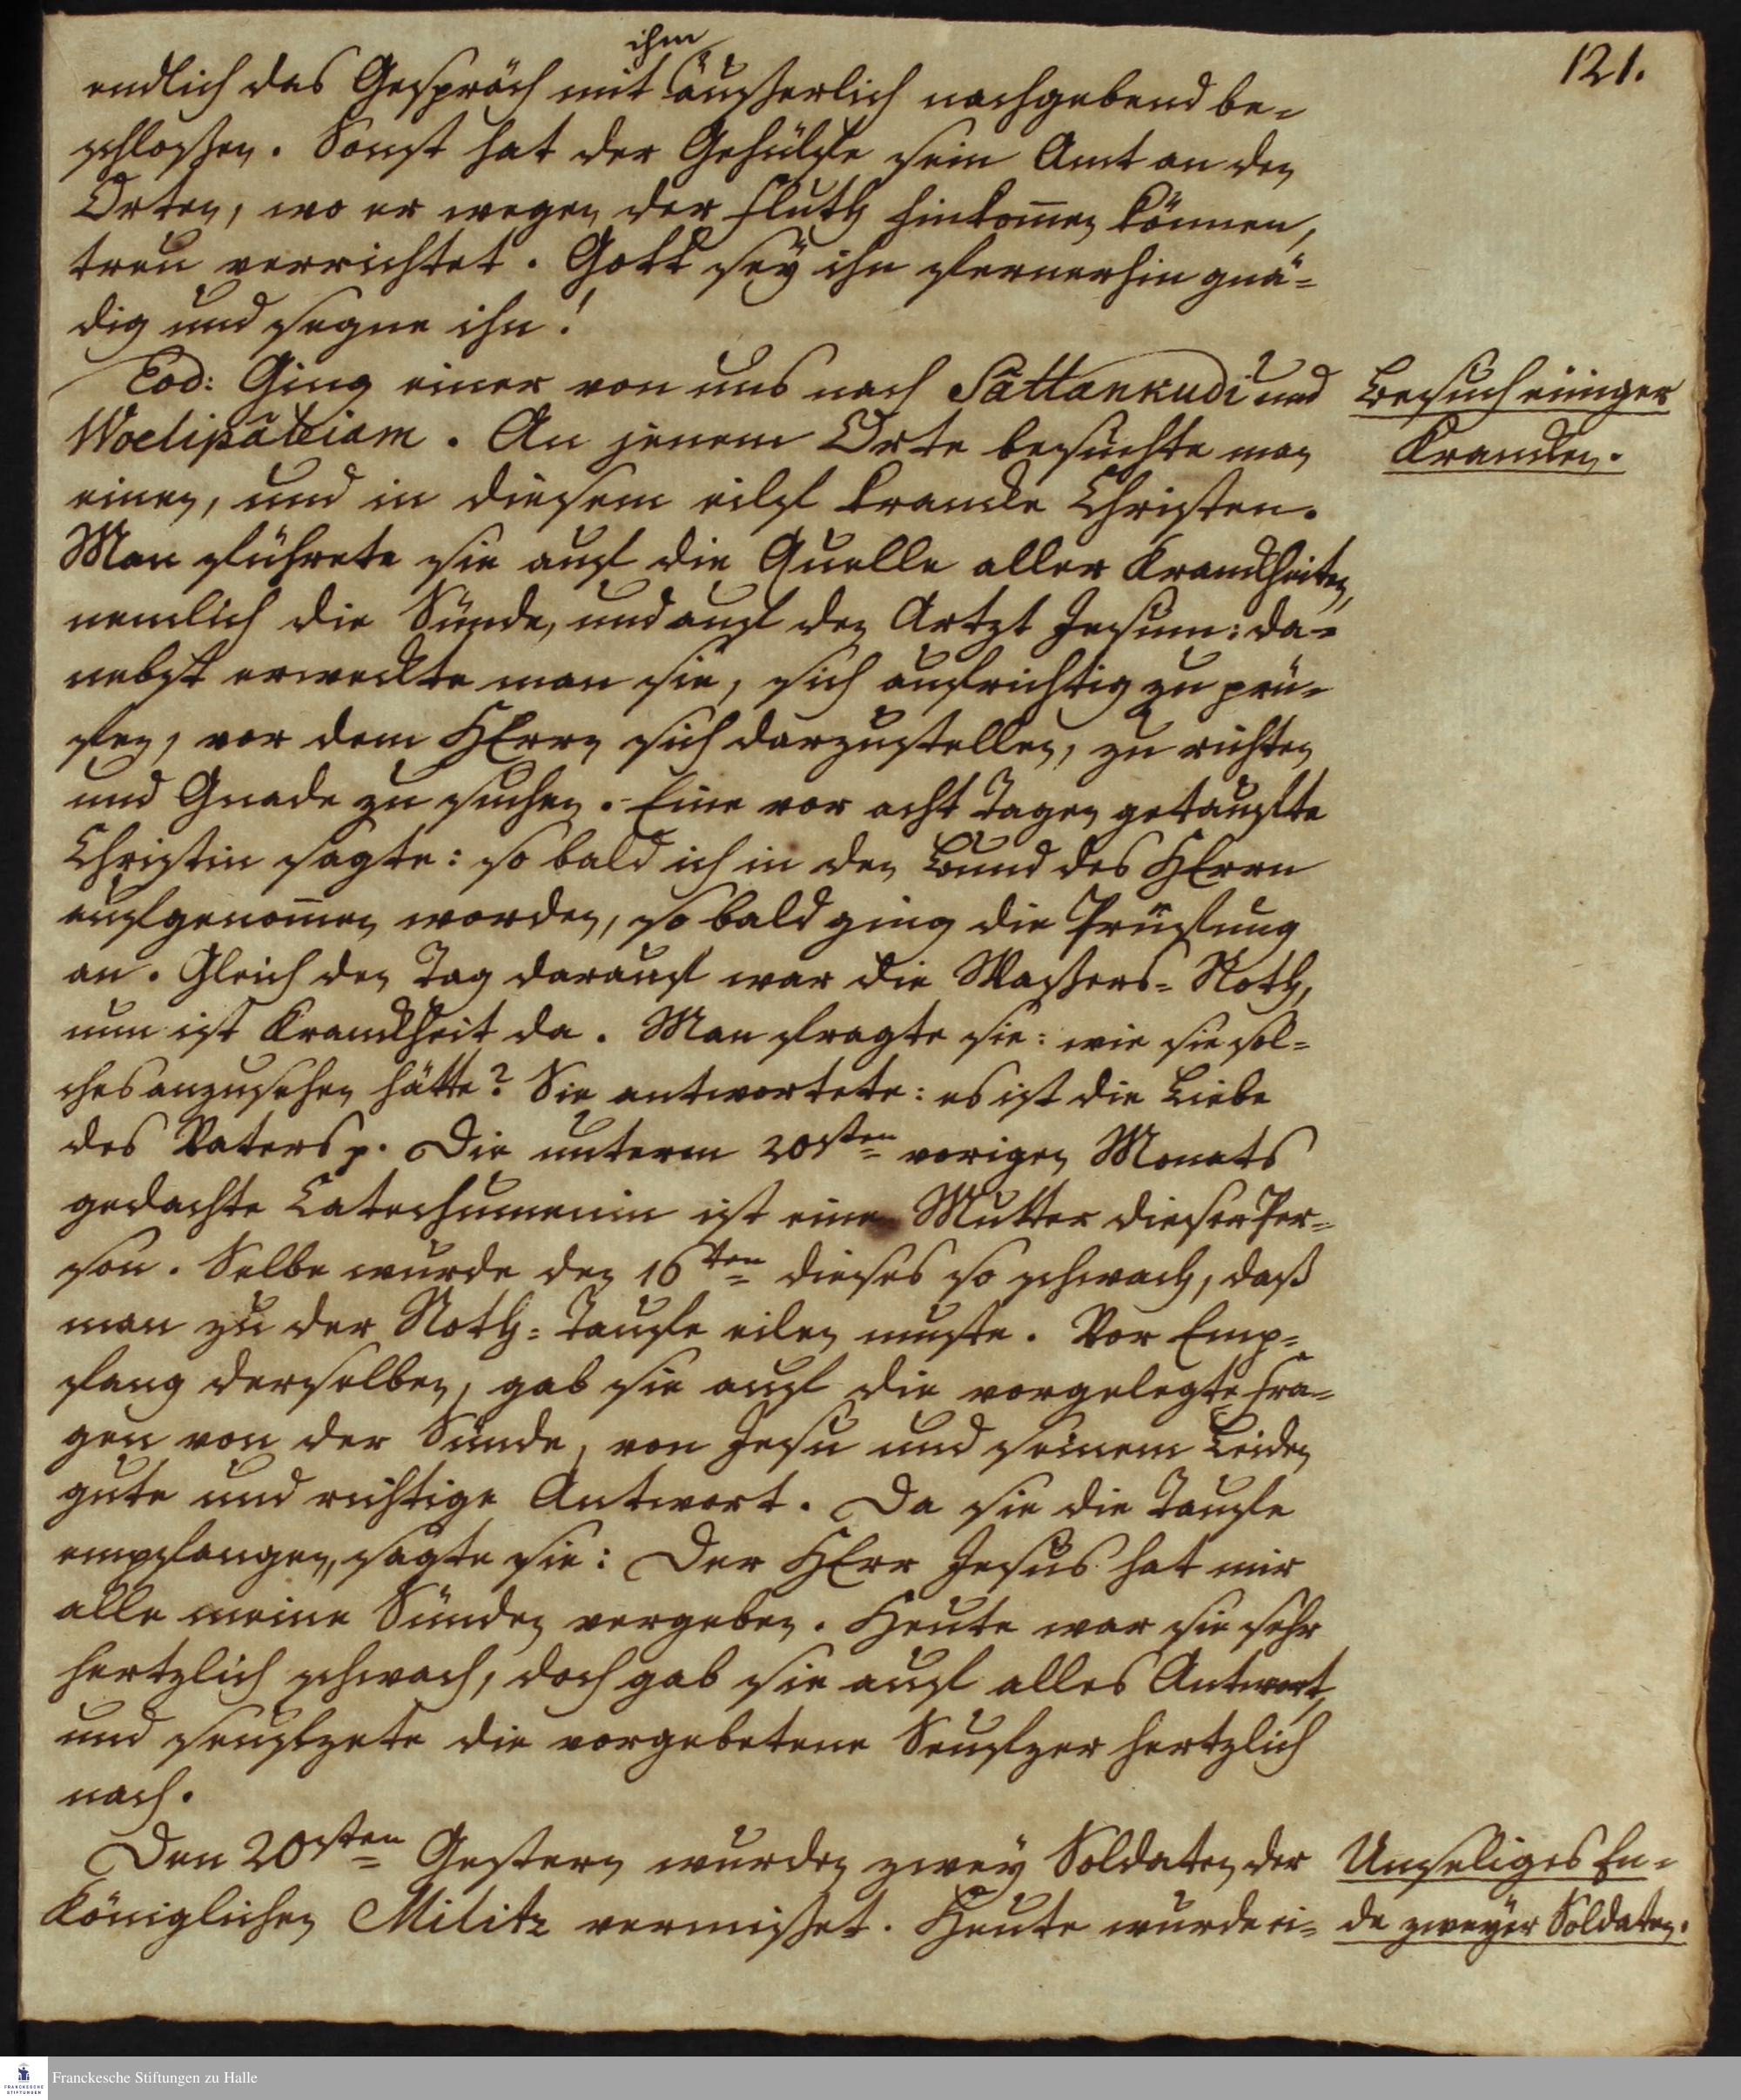 121.
ihm
endlich das Gespräch mit äußerlich nachgebend be-
schloßen. Sonst hat der Gehülfe sein Amt an den
Orten, wo er wegen der Fluth hinkom̅en können,
treu verrichtet. Gott sey ihm fernerhin gnä-
dig und segne ihn!
Eod: Ging einer von uns nach Sattankudi und
Woelipaleiam. An jenem Orte besuchte man
einen, und in diesem eilf krancke Christen.
Man führete sie auf die Quelle aller Kranckheiten,
nemlich die Sünde, und auf den Artzt Jesum: da-
nebst erweckte man sie, sich aufrichtig zu prü-
fen, vor dem HErrn sich darzustellen, zu richten
und Gnade zu suchen. Eine vor acht Tagen getaufte
Christin sagte: so bald ich in den Bund des HErrn
aufgenom̅en worden, so bald ging die Prüfung
an. Gleich den Tag darauf war die Waßers-Noth,
nun ist Kranckheit da. Man fragte sie: wie sie sol-
ches anzusehen hätte? Sie antwortete: es ist die Liebe
des Vaters p. Die unterm 20sten vorigen Monats
gedachte Catechumenin ist eine Mutter dieser Per-
son. Selbe wurde den 16ten dieses so schwach, daß
man zu der Noth-Taufe eilen muste. Vor Emp-
fang derselben, gab sie auf die vorgelegte Fra-
gen von der Sünde, von Jesu und seinem Leiden
gute und richtige Antwort. Da sie die Taufe
empfangen, sagte sie: Der HErr Jesus hat mir
alle meine Sünden vergeben. Heute war sie sehr
hertzlich schwach, doch gab sie auf alles Antwort,
und seufzete die vorgebetene Seufzer hertzlich
nach.
Den 20sten Gestern wurden zwey Soldaten der
Königlichen Militz vermißet. Heute wurde ei-
Besuch einiger
Krancken.
Unseliges En-
de zweyer Soldaten.
Franckesche Stiftungen zu Halle